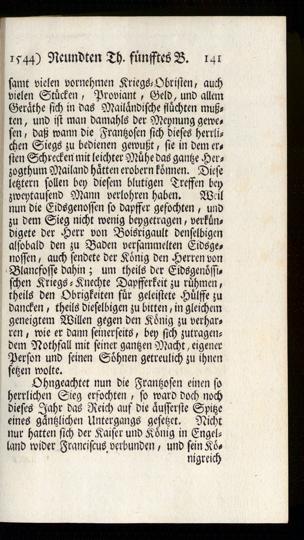 1544) Neundten Th. fünfftes B. 141
samt vielen vornehmen Kriegs-Obristen, auch
vielen Stücken, Proviant, Geld, und allem
Geräthe sich in das Mailändische flüchten muß-
ten, und ist man damahls der Meynung gewe-
sen, daß wann die Frantzosen sich dieses herrli-
chen Siegs zu bedienen gewußt, sie in dem er-
sten Schrecken mit leichter Mühe das gantze Her-
zogthum Mailand hätten erobern können. Diese
letztern sollen bey diesem blutigen Treffen bey
zweytausend Mann verlohren haben. Weil
nun die Eidsgenossen so dapffer gefochten, und
zu dem Sieg nicht wenig beygetragen, verkün-
digete der Herr von Boisrigault denselbigen
alsobald den zu Baden versammelten Eidsge-
nossen, auch sendete der König den Herren von
Blancfosse dahin; um theils der Eidsgenössi-
schen Kriegs-Knechte Dapfferkeit zu rühmen,
theils den Obrigkeiten für geleistete Hülffe zu
dancken, theils dieselbigen zu bitten, in gleichem
geneigtem Willen gegen den König zu verhar-
ren, wie er dann seinerseits, bey sich zutragen-
dem Nothfall mit seiner gantzen Macht, eigener
Person und seinen Söhnen getreulich zu ihnen
setzen wolte.
Ohngeachtet nun die Frantzosen einen so
herrlichen Sieg erfochten, so ward doch noch
dieses Jahr das Reich auf die äusserste Spitze
eines gäntzlichen Untergangs gesetzt. Nicht
nur hatten sich der Kaiser und König in Engel-
land wider Franciscus verbunden, und sein Kö-
nigreich